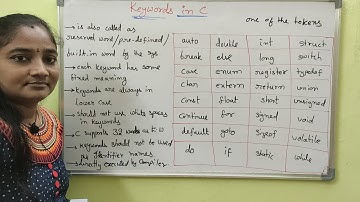 Keywords in C
one of the tokens
→ is also called as
reserved word/pre-defined/
built-in word by the sys
→ each keyword has some
fixed meaning
→ keywords are always in
lower case
→ should not use white spaces
in keywords
→ C supports 32 words as K.W
→ keywords should not be used
as Identifier names
→ directly executed by compiler
auto double int struct
break else long switch
case enum register typedef
char extern return union
const float short unsigned
continue for signed void
default goto sizeof volatile
do if static while